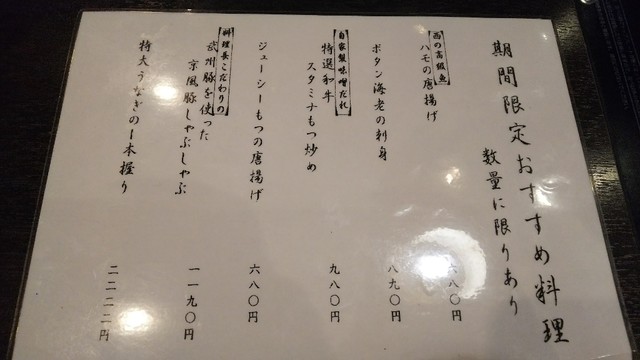 期間限定おすすめ料理
数量に限りあり
西の高級魚
ハモの唐揚げ
六八〇円
ボタン海老の刺身
八九〇円
自家製味噌だれ
特選和牛
スタミナもつ炒め
九八〇円
ジューシーもつの唐揚げ
六八〇円
料理長こだわりの
武州豚を使った
京風豚しゃぶしゃぶ
一一九〇円
特大うなぎの1本握り
二二二二円